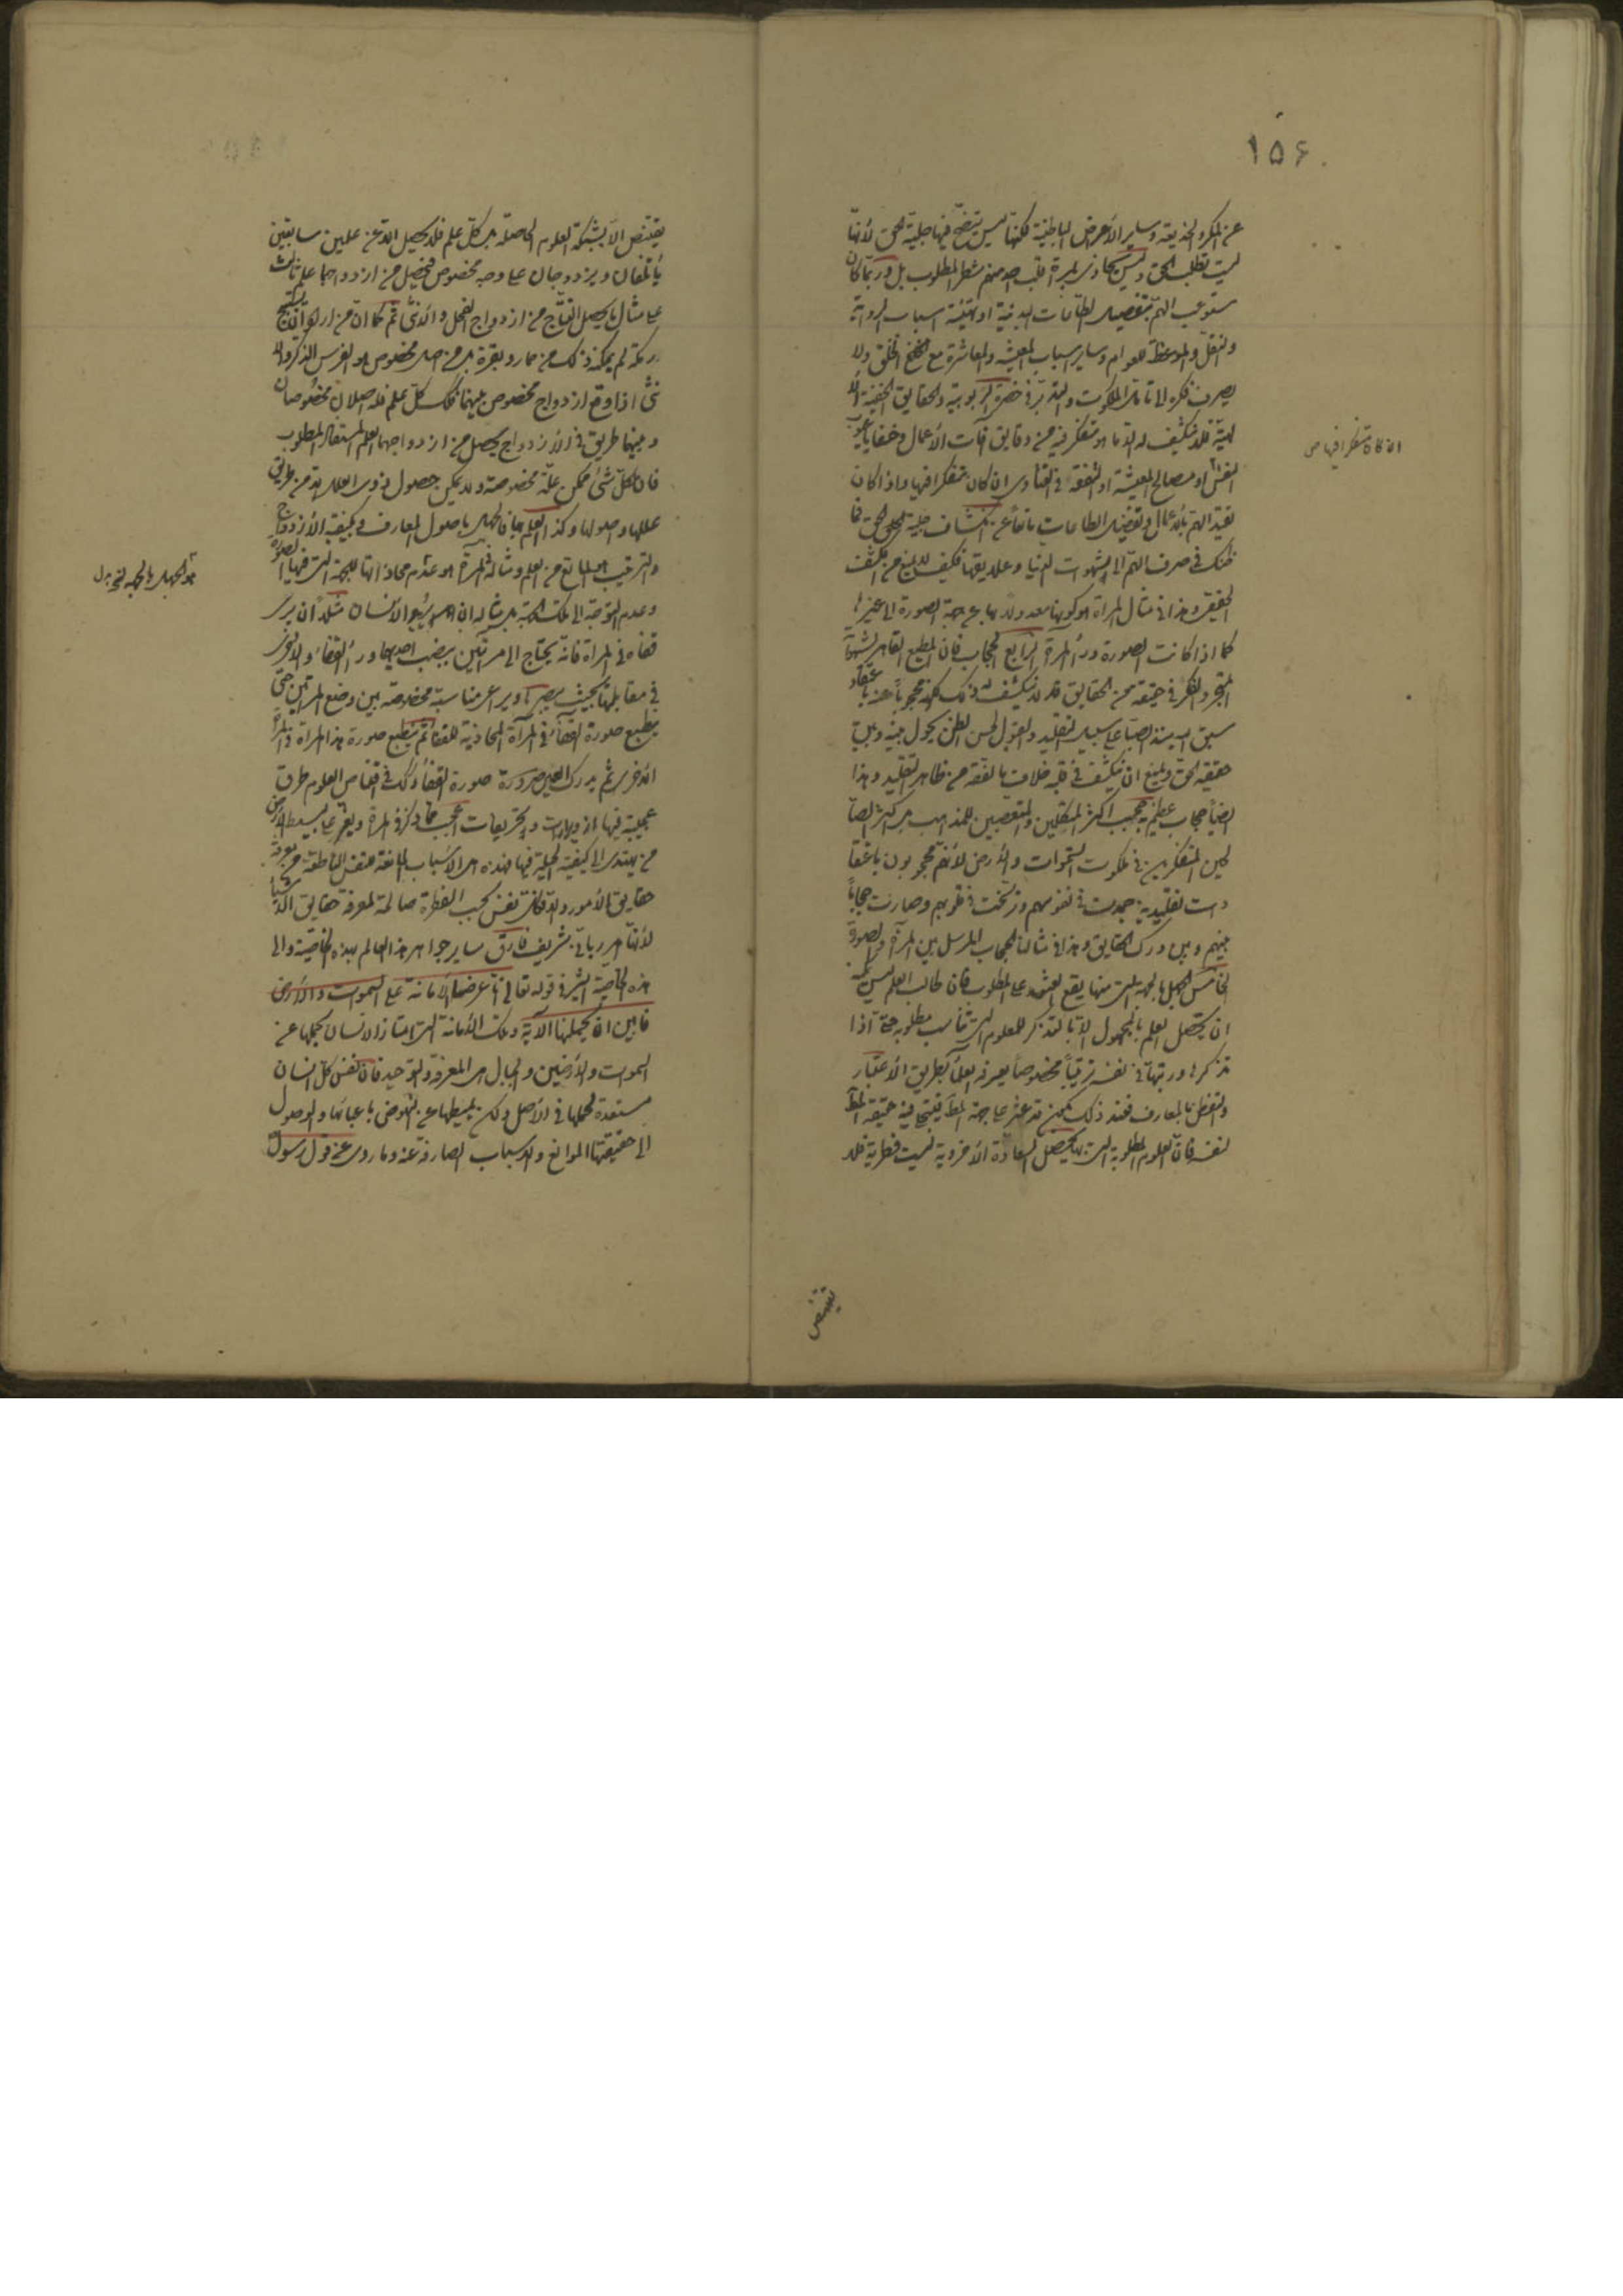 ١٥۶
عن المكر والخديعة وساير الأعراض الباطنية لكنها ليس يتضح فيها جلية الحق لأنها
ليست تطلب الحق وليس يحاذى بمرآة قلب منهم شطر المطلوب بل وربما كان
مستوعب الهم بتفصيل الطاعات البدنية او تهيئة اسباب الرواية
والنقل والموعظة للعوام وساير اسباب المعيشة والمعاشرة مع الخلق ولا
يصرف فكره الى تأمل الملكوت والتدبر فى حضرة الربوبية والحقايق الخفية الا
لهية فلا ينكشف له الا ما هو متفكر فيه من دقايق آفات الأعمال وخفايا عيوب
النفس او مصالح المعيشة او التفقه فى الفتاوى ان كان متفكرا فيها واذا كان
تقيد الهم بالأعمال وتفصيل الطاعات مانعا عن انكشاف جلية الحق فما
ظنك فى صرف الهم الى شهوات الدنيا وعلايقها فكيف لا يمنع من الكشف
الحقيقى وهذا فى مثال المرآة هو كونها معدولا بها عن جهة الصورة الى غيرها
كما اذا كانت الصورة وراء المرآة الرابع الحجاب فان المطيع القاهر لشهواته
المتجرد الفكر فى حقيقة من الحقايق قد لا ينكشف له ذلك لكونه محجوبا عنه باعتقاد
سبق اليه منذ الصبا على سبيل التقليد والقبول بحسن الظن يحول بينه وبين
حقيقة الحق ويمنع ان ينكشف فى قلبه خلاف ما تلقفه من ظاهر التقليد وهذا
ايضا حجاب عظيم به حجب اكثر المتكلمين والمتعصبين للمذاهب بل اكثر الصا
لحين المتفكرين فى ملكوت السموات والأرض لأنهم محجوبون باعتقا
دات تقليدية جمدت فى نفوسهم ورسخت فى قلوبهم وصارت حجابا
بينهم وبين درك الحقايق وهذا فى مثالنا الحجاب المرسل بين المرآة والصورة
الخامس الجهل بالجهة التى منها يقع العثور على المطلوب فان طالب العلم ليس يمكنه
ان يحصل العلم بالمجهول الا بالتذكر للعلوم التى تناسب مطلوبه حتى اذا
تذكرها ورتبها فى نفسه ترتيبا مخصوصا يعرفه العلماء بطريق الأعتبار
والتفطن بالمعارف فعند ذلك قد عثر على جهة المط فينتجلى فيه حقيقة المط
لنفسه فان العلوم المطلوبة التى بها يحصل السعادة الأخروية ليست فطرية فلا
يقتنص
يقتنص الا بشبكة العلوم الحاصلة بل كل علم فلا يحصل الا عن علمين سابقين
يأتلفان ويزدوجان على وجه مخصوص فيحصل من ازدواجها علم ثالث
على مثال ما يحصل النتاج من ازدواج الفحل والأنثى ثم كما ان من اراد ان يستنتج
رمكة لم يمكنه ذلك من حمار وبقرة بل من اصل مخصوص هو الفرس الذكر والا
نثى اذا وقع ازدواج مخصوص بينهما فكذلك كل علم فله اصلان مخصوصان
وبينهما طريق فى الأزدواج يحصل من ازدواجهما العلم المستفاد المطلوب
فان لكل شئ ممكن علة مخصوصة ولا يمكن حصول ذوى العلل الا من طريق
عللها واصولها وكذا العلم بها فالجهل باصول المعارف وكيفية الأزدواج
والترتيب هو المانع من العلم ومثاله فى المرآة هو عدم محاذاتها للجهة التى فيها الصورة
وعدم التوجه الى تلك الجهة بل مثاله ان يريد الأنسان مثلا ان يرى
قفاه فى المرآة فانه يحتاج الى مرآتين ينصب احديهما وراء القفا والأخرى
فى مقابلتها بحيث يبصرها ويراعى مناسبة مخصوصة بين وضع المرآتين حتى
ينطبع صورة القفا فى المرآة المحاذية للقفا ثم ينطبع صورة هذا المرآة فى المرآة
الأخرى ثم يدرك العين صورة القفا وكذلك فى اقتناص العلوم طرق
عجيبة فيها ازورارات وتحريفات اعجب مما ذكر فى المرآة ويعز على بسيط الأرض
من يهتدى الى كيفية الحيلة فيها فهذه هى الأسباب المانعة للنفس الناطقة من معرفة
حقايق الأمور والا فكل نفس بحسب الفطرة صالحة لمعرفة حقايق الاشياء
لأنها امر ربانى شريف فارق ساير جواهر هذا العالم بهذه الخاصية والى
هذه الخاصية اشير فى قوله تعالى انا عرضنا الأمانة على السموات والأرض
فابين ان يحملنها الآية وتلك الأمانة التى امتاز الأنسان بحملها عن
السموات والأرضين والجبال هى المعرفة والتوحيد فان نفس كل انسان
مستعدة لحملها فى الأصل ولكن يثبطها عن النهوض باعبائها والوصول
الى حقيقتها الموانع والأسباب الصارفة عنه وما روى عن قول رسول